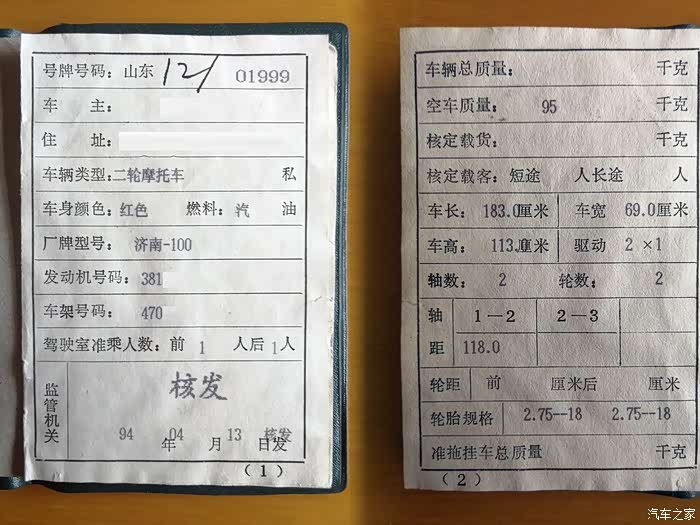 号牌号码：山东 121 01999
车 主：
住 址：
车辆类型：二轮摩托车 私
车身颜色：红色 燃料：汽 油
厂牌型号：济南-100
发动机号码：381
车架号码：470
驾驶室准乘人数：前 1 人后 1 人
监管机关
核发
94 年 04 月 13 日发 核发
(1)
车辆总质量： 千克
空车质量： 95 千克
核定载货： 千克
核定载客：短途 人长途 人
车长： 183.0厘米 车宽 69.0厘米
车高： 113.0厘米 驱动 2×1
轴数： 2 轮数： 2
轴距 1—2 2—3
118.0
轮距 前 厘米后 厘米
轮胎规格 2.75--18 2.75--18
准拖挂车总质量 千克
(2)
汽车之家